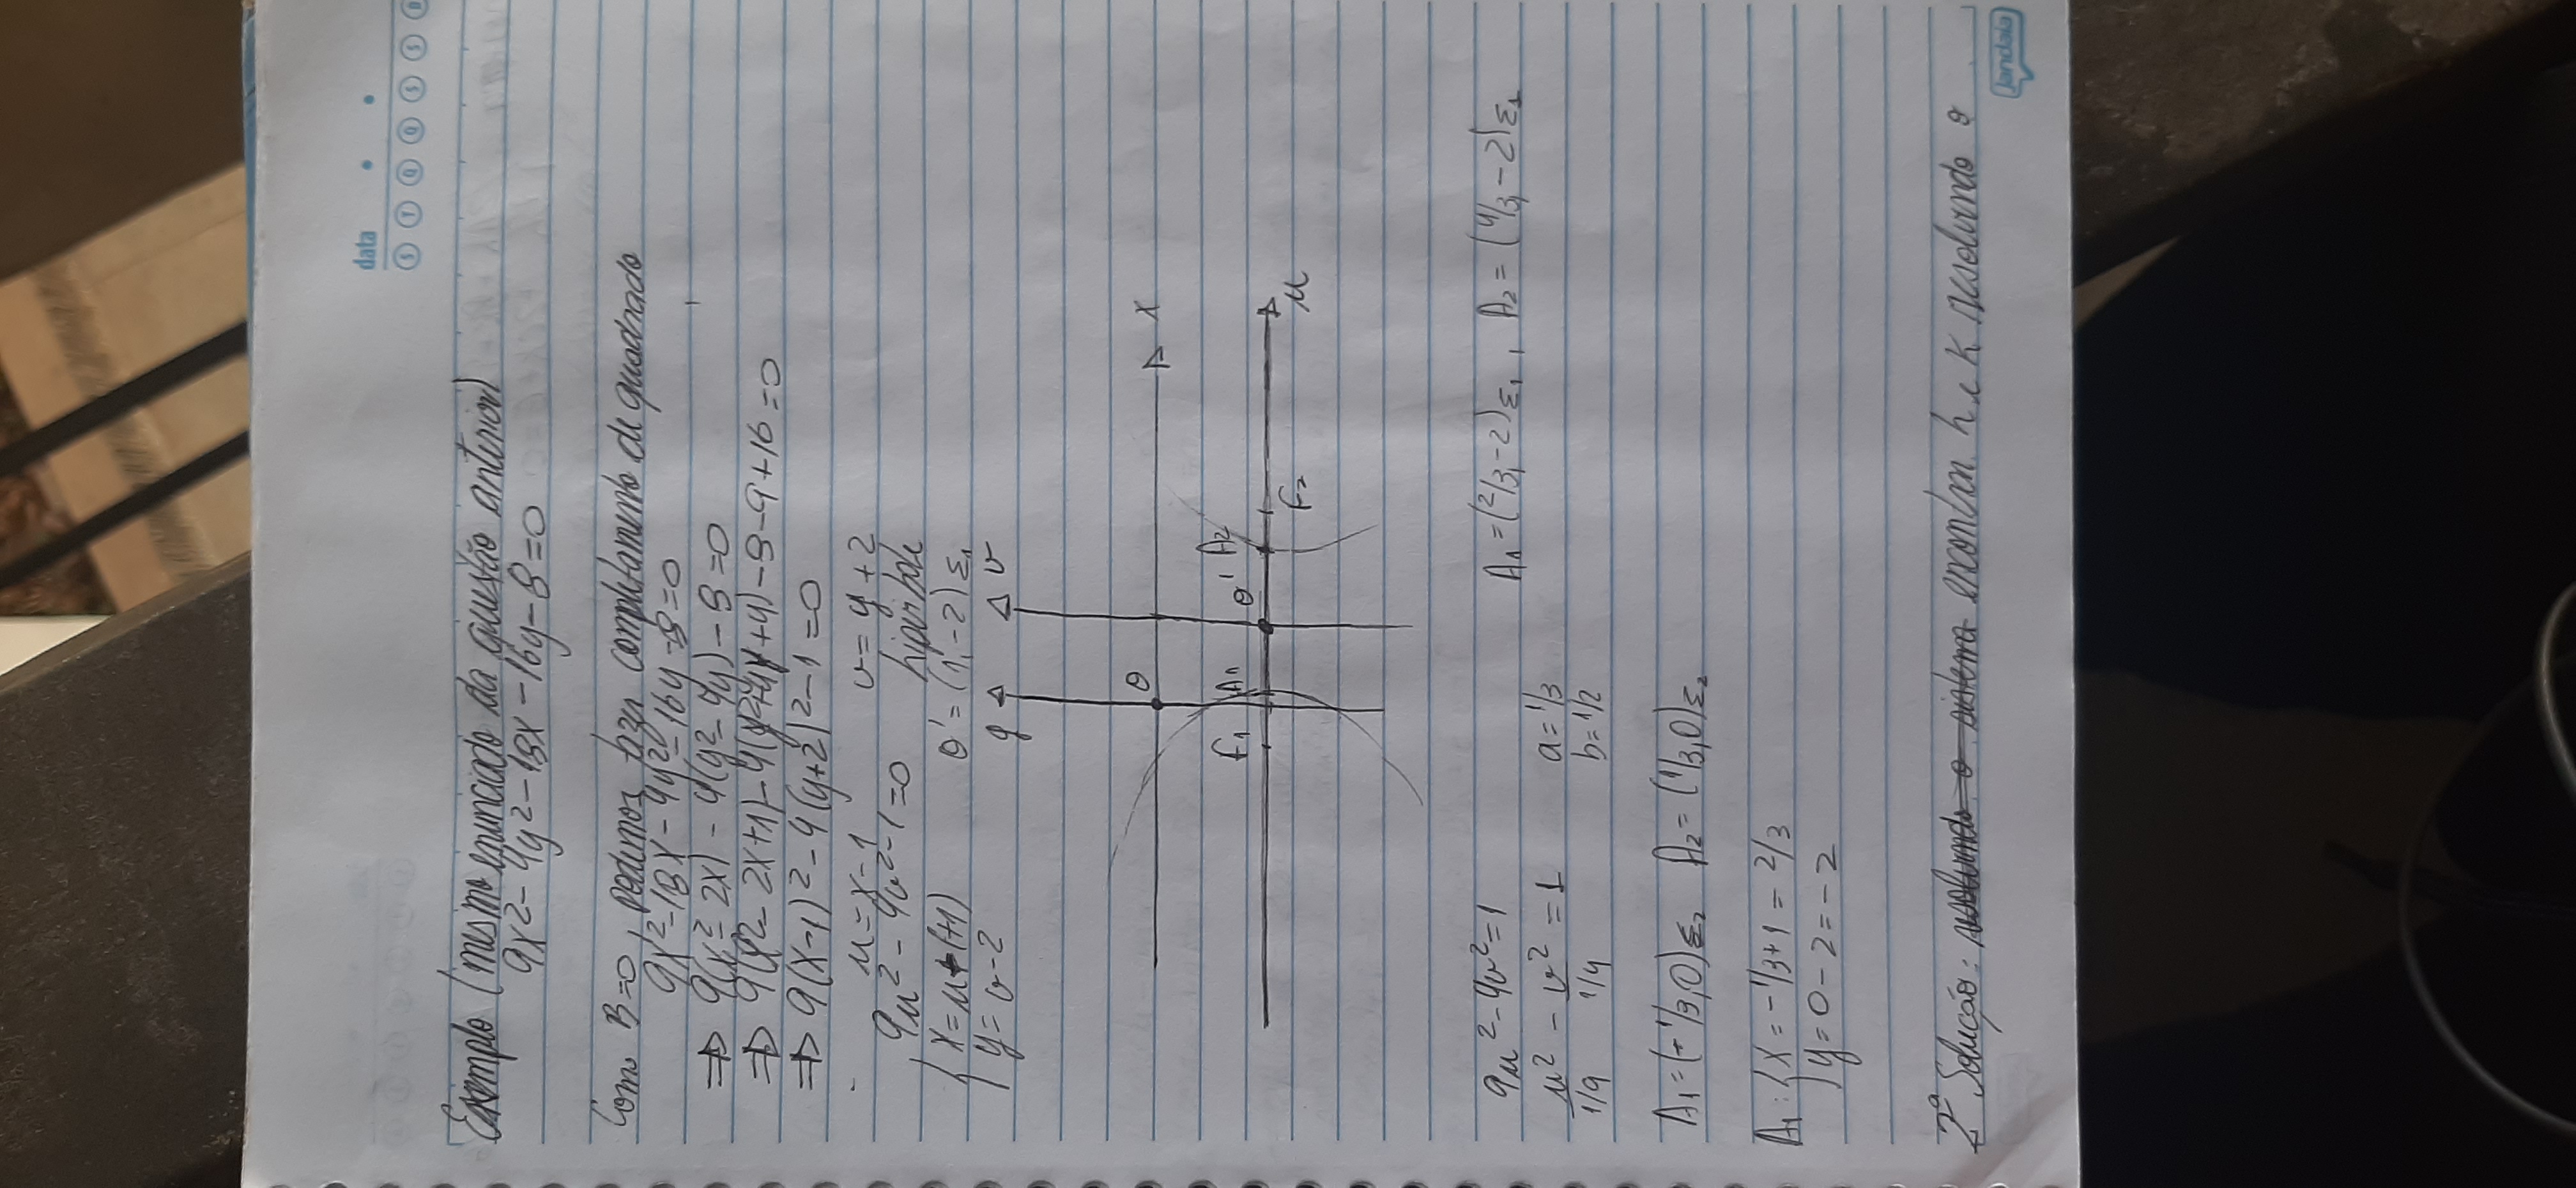 data
S T Q Q S S D
Exemplo (mesmo enunciado da questão anterior)
9x²-4y²-18x-16y-8=0
Como B=0, podemos fazer completamento de quadrado
9x²-18x-4y²-16y-8=0
⇒ 9(x²-2x)-4(y²-4y)-8=0
⇒ 9(x²-2x+1)-4(y²+4y+4)-8-9+16=0
⇒ 9(x-1)²-4(y+2)²-1=0
u=x-1 v=y+2
9u²-4v²-1=0 hipérbole
{ x=u+(+1) θ'=(1,-2)Σ₁
y=v-2
y v
θ x
F₁ A₁ θ' A₂
F₂ u
9u²-4v²=1 A₁=(2/3,-2)Σ₁, A₂=(4/3,-2)Σ₁
u²/1/9 - v²/1/4 = 1 a=1/3
b=1/2
A₁=(-1/3,0)Σ₂ A₂=(1/3,0)Σ₂
A₁: { x=-1/3+1=2/3
y=0-2=-2
2ª Solução: resolvendo o sistema encontrar h e k resolvendo o
jandaia